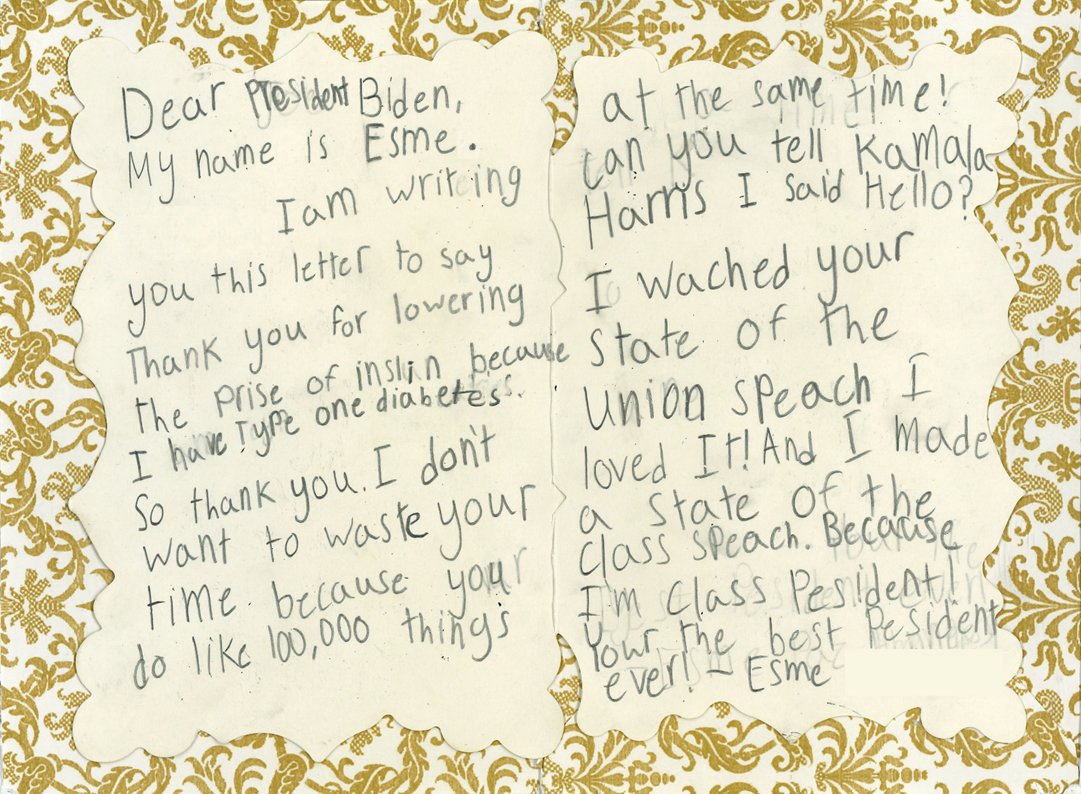 Dear President Biden,
My name is Esme.
I am writing
you this letter to say
Thank you for lowering
the prise of inslin because
I have Type one diabetes.
So thank you. I don't
want to waste your
time because your
do like 100,000 things
at the same time!
can you tell Kamala
Harris I said Hello?
I wached your
State of the
Union speach I
loved It! And I made
a State of the
Class speach. Because
I'm Class Pesident!
Your the best Pesident
ever! - Esme